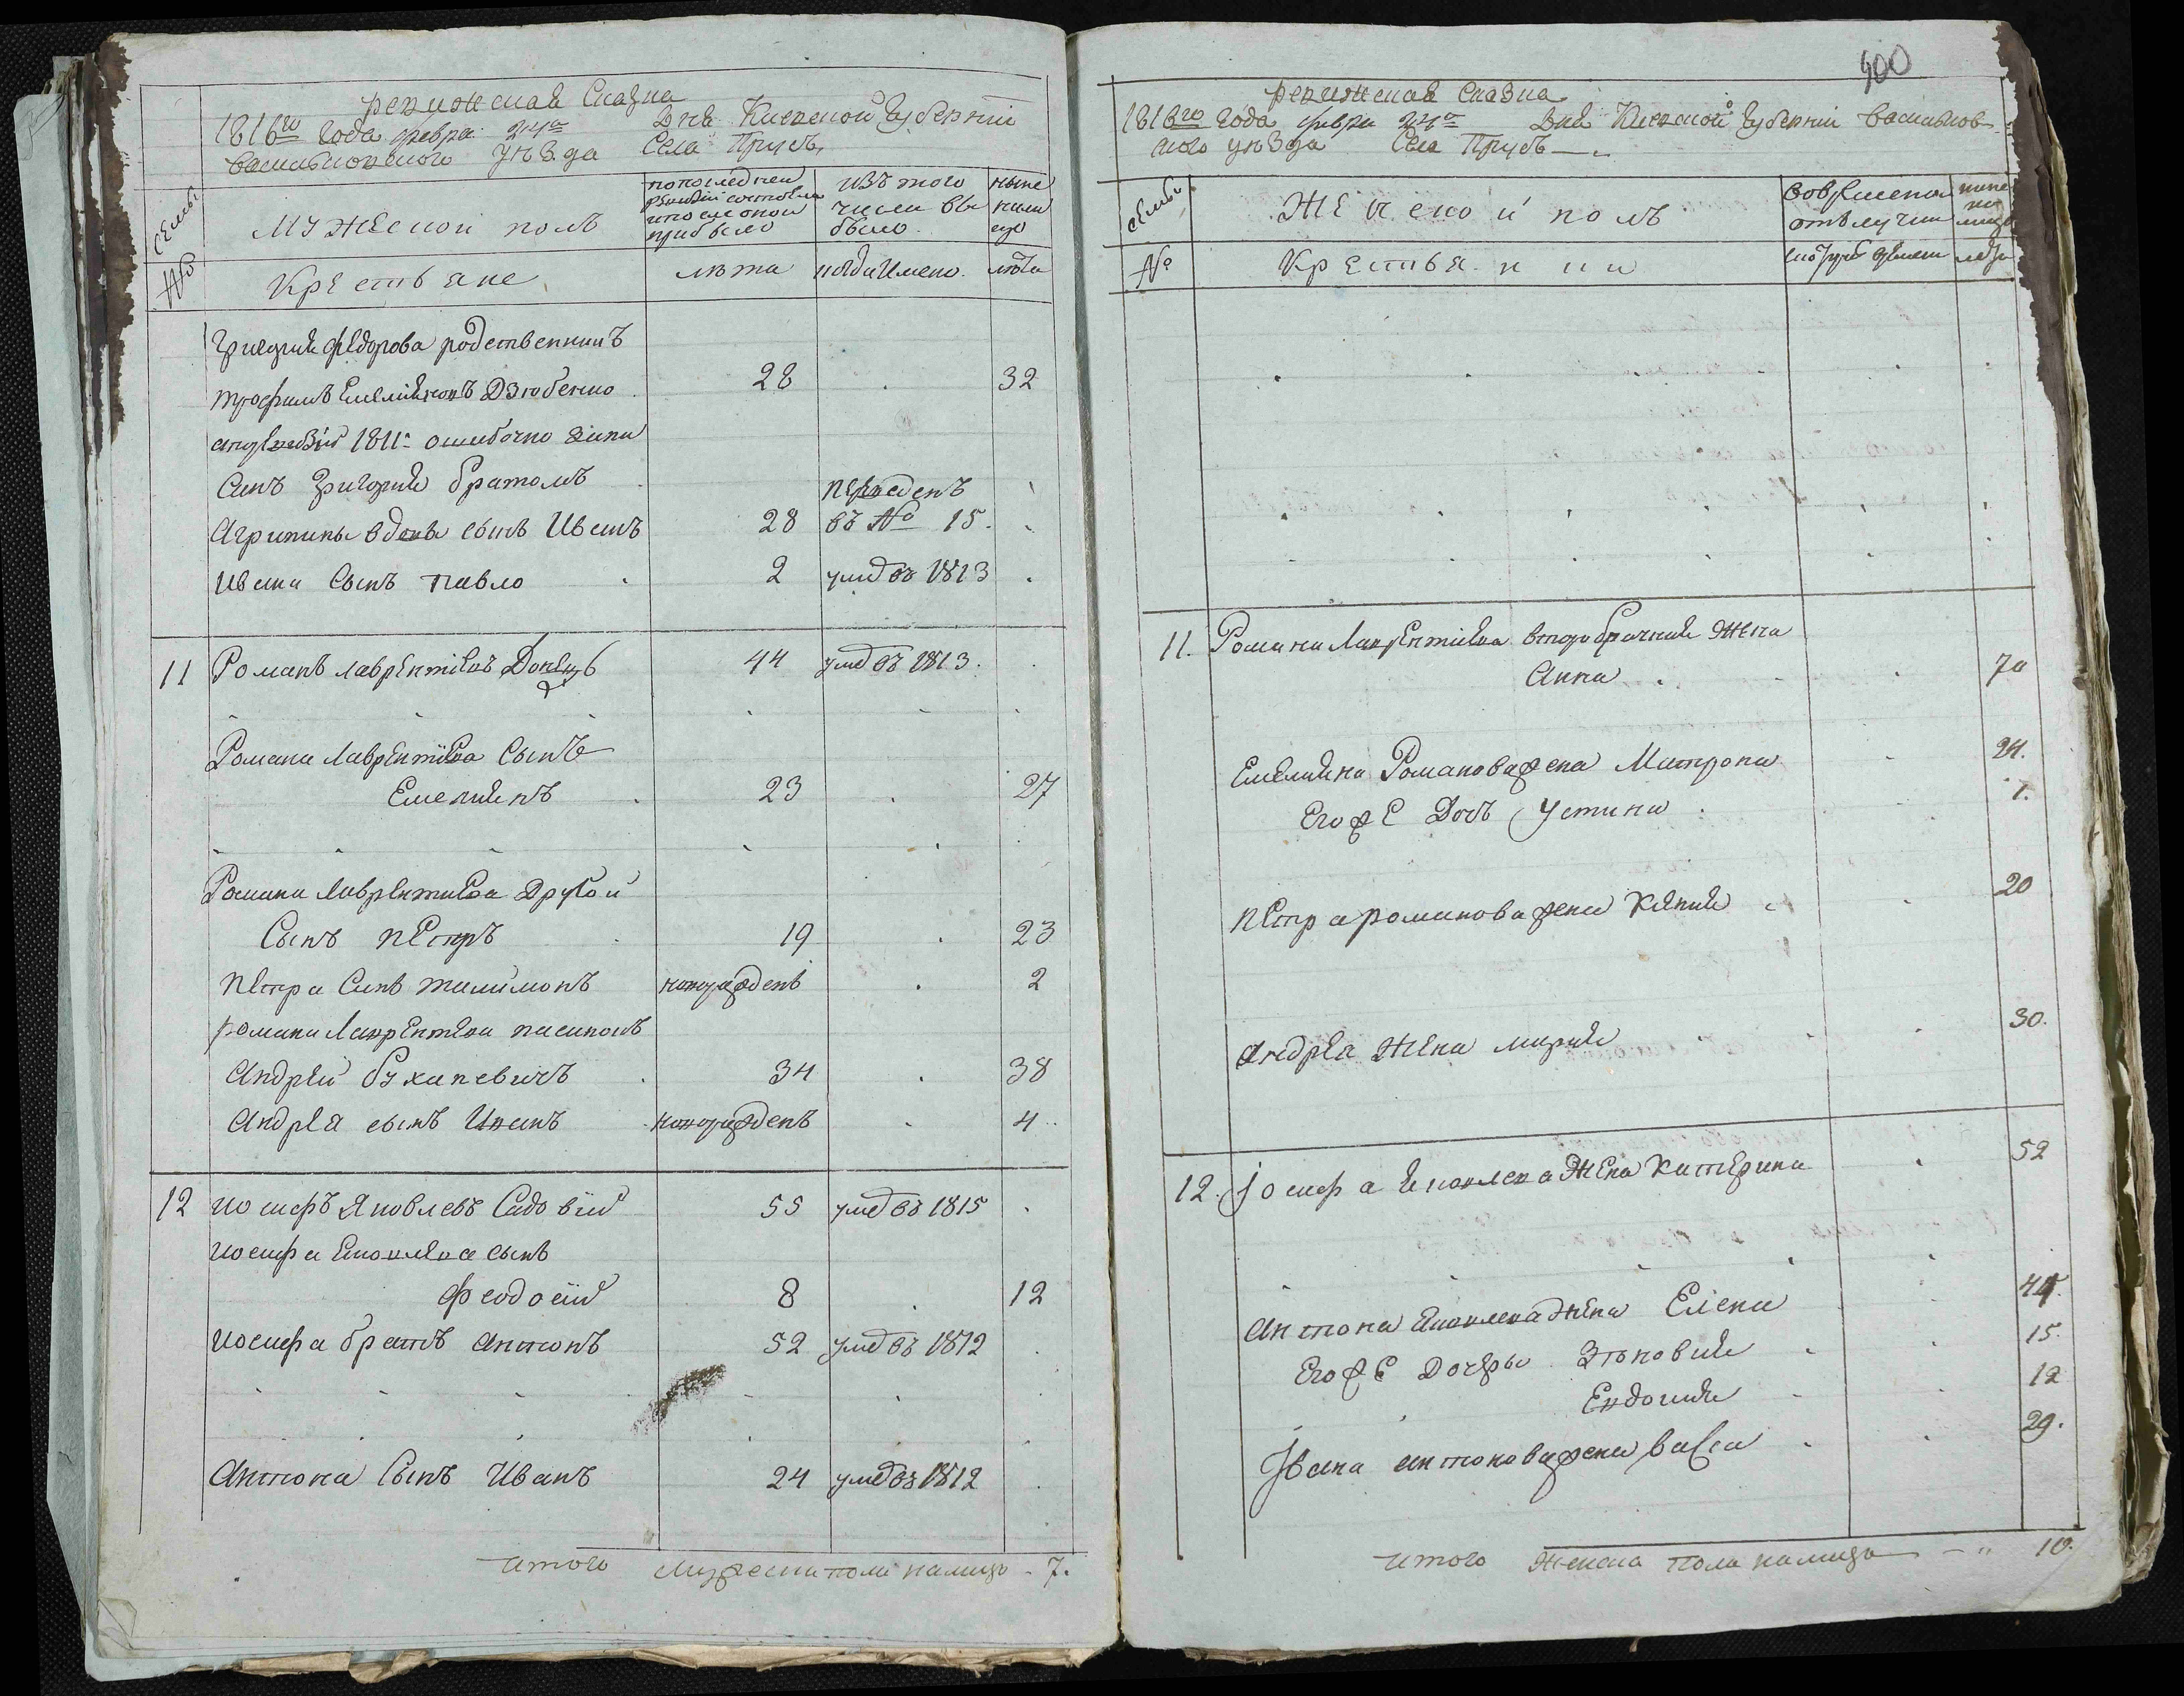 ревижская Сказка
1816го Года февра: 24го Дня Киевской Губерніи
Васильковского уѣзда Села Прусъ,
семьи
Мужескои полъ
попоследнеи ревизіи состояло ипослеоной прибыло
изъ того числа выбыло
ныне налицо
№
Крестьяне
лѣта
когда имено.
лѣта
Григория федорова родственникъ
трофимъ Емелияновъ Дзюбенко 28 32
1811: ошибочно
Синъ Григорий братомъ переведенъ
Агрипины вдовы сынъ Иванъ 28 въ № 15.
Ивана Сынъ Павло 2 умѣ въ 1813
11 Романъ Лаврентіевъ Донецъ 44 умѣ въ 1813.
Романа Лаврентіева Сынъ
Емелиянъ 23 27
Романа Лаврентиева Другой
Сынъ петръ 19 23
петра Синъ тилимонъ новорожденъ 2
романа Лаврентева пасинокъ
Андрей буханевичъ 34 38
Андрея сынъ Иванъ новорожденъ 4
12 иосифъ Яковлевъ Садовій 55 умѣ въ 1815
иосифа Яковлева сынъ
Феодосій 8 12
иосифа братъ антонъ 52 умѣ въ 1812
Антона Сынъ Иванъ 24 умѣ въ 1812
итого мужеска пола налицо 7.
400
ревижская Сказка
1816го Года февра 24го Дня Киевской Губерніи Васильков-
ского уѣзда Села Прусъ
семьи
Женской полъ
Вовременой отълучки
ныне налицо
№
Крестьянки
лѣта
11. Романа Лаврентиева второбрачная жена
Анна 70
Емелияна Романова жена Матрона 24.
Егоже Дочь Устина 1.
петра романова жена Ксения 20
андрея жена мария 30.
12. Iосифа яковлева жена Катерина 52
Антона Яковлева жена Елена 44.
Егоже Дочеры Зѣновия 15.
Евдокия 12
Iвана антонова жена васса 29.
итого женска пола налицо 10.